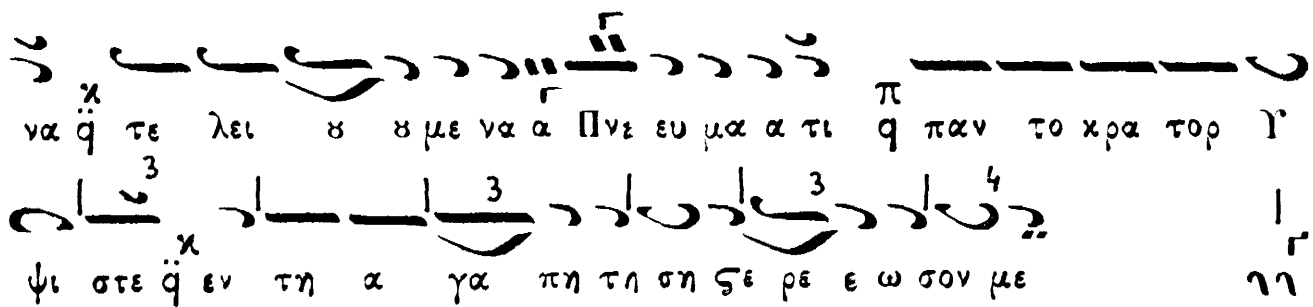 να ϰ̈q τε λει ȣ ȣ με να α Πνε ευ μα α τι π q παν το κρα τορ Υ
ψι στε ϰ̈q εν τη α γα πη τη ση ϛε ρε ε ω σον με